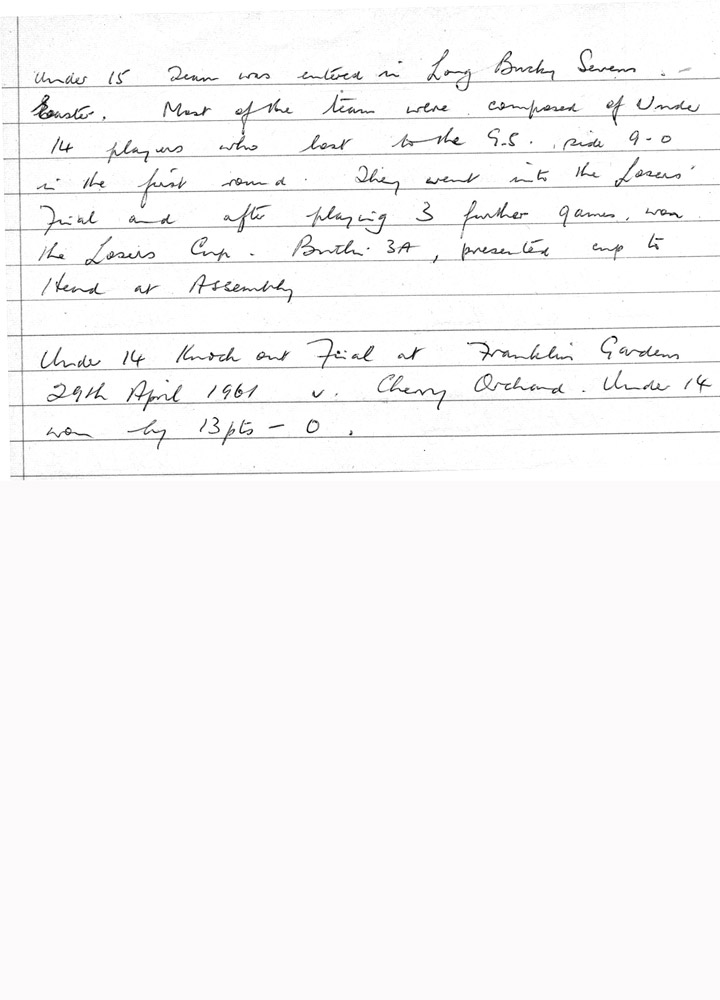 Under 15 Team was entered in Long Bucky Sevens. -
Easter. Most of the team were composed of Under
14 players who lost to the G.S. side 9-0
in the first round. They went into the Losers'
Final and after playing 3 further games, won
the Losers Cup. 3A, presented cup to
Head at Assembly
Under 14 Knock out Final at Franklin Gardens
29th April 1961 v. Cherry Orchard. Under 14
won by 13pts - 0.